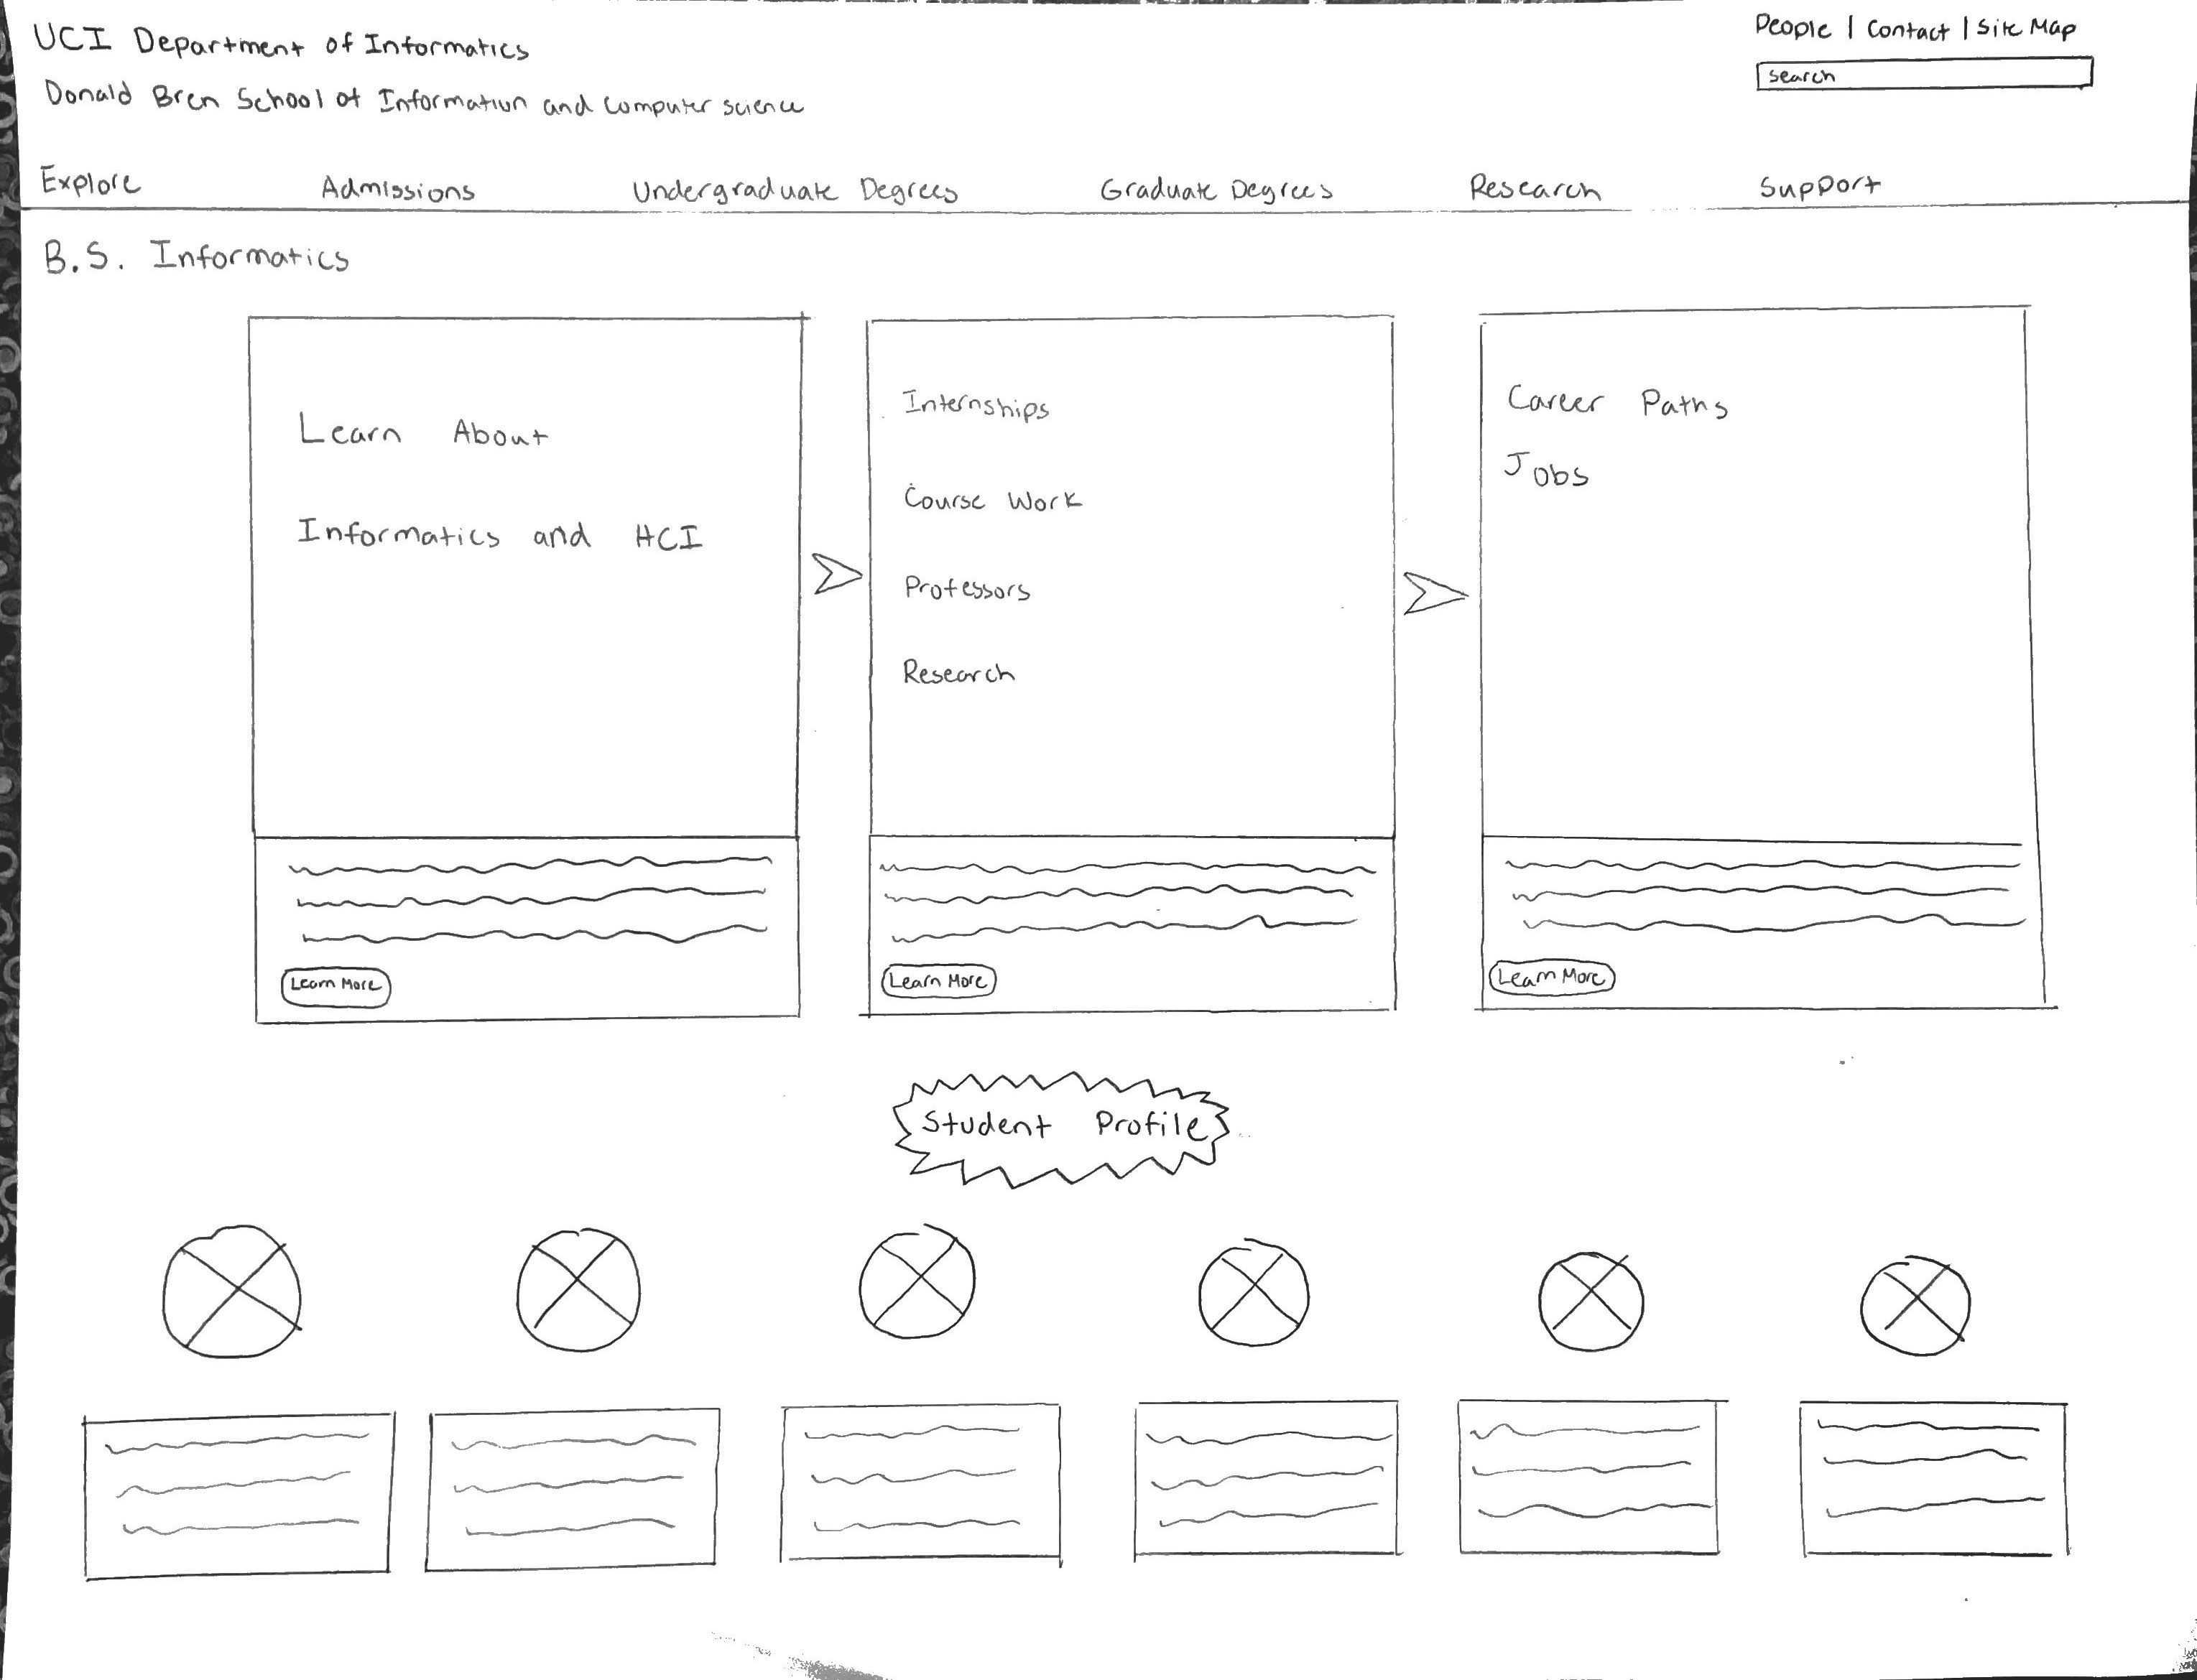 UCI Department of Informatics
Donald Bren School of Information and Computer Science
People | Contact | Site Map
Search
Explore Admissions Undergraduate Degrees Graduate Degrees Research Support
B.S. Informatics
Learn About
Informatics and HCI
Learn More
Internships
Course Work
Professors
Research
Learn More
Career Paths
Jobs
Learn More
Student Profile